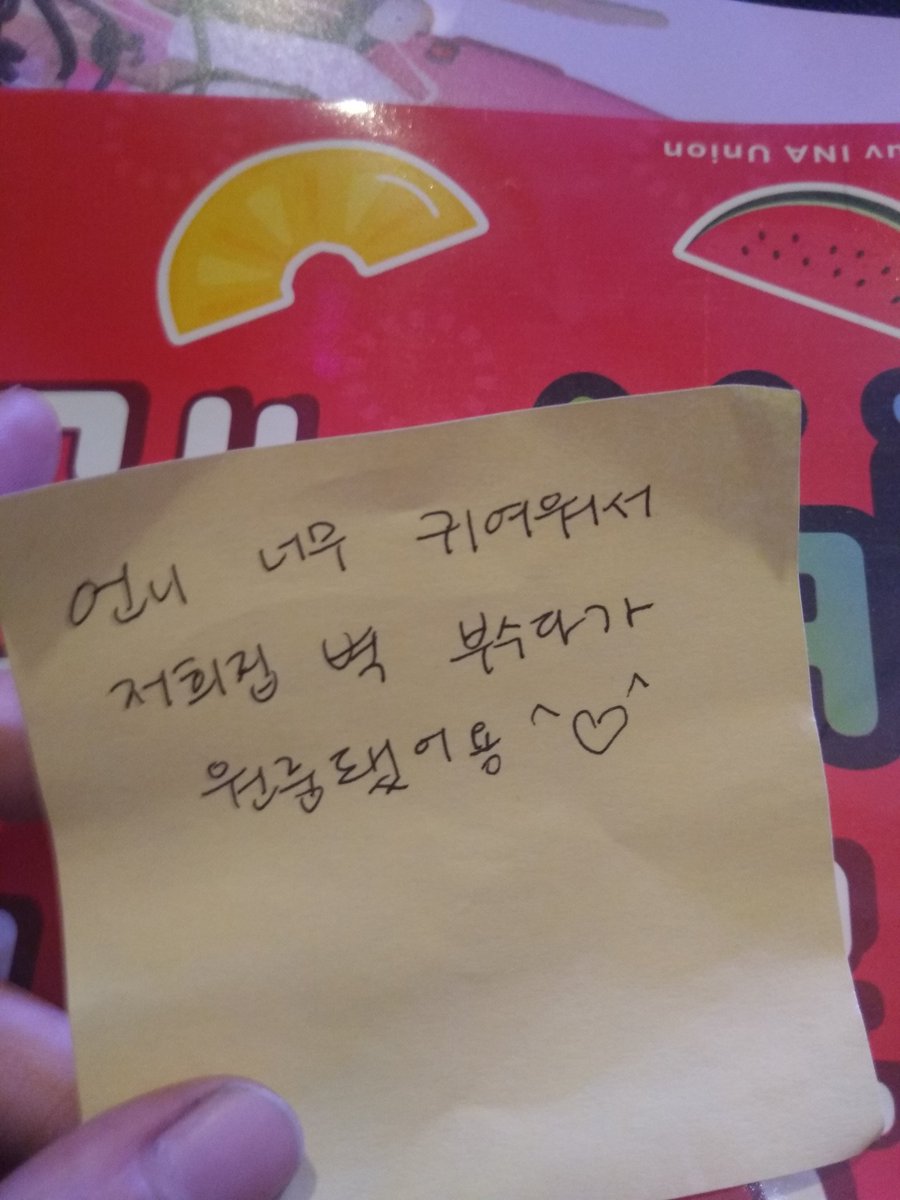 uv INA Union
언니 너무 귀여워서
저희집 벽 부수다가
원룸됐어용 ^♡^